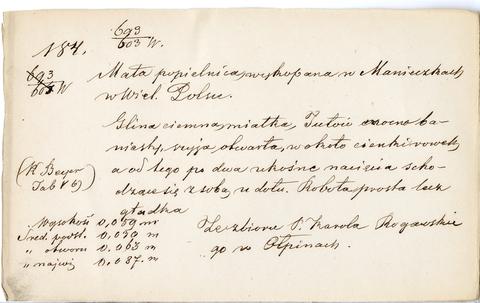 184.
693
603 W.
693
603 W
Mała popielnica, wykopana w Manieczkach
w Wiel. Polsce.
Glina ciemna, miałka,
niasty, szyja otwarta, w około cienki rowek,
a od tego po dwa ukośne nacięcia scho-
dzące się z sobą, u dołu. Robota prosta lecz
gładka
(K Beyer
Tab V 6)
Wysokość 0,059 m
Śred. podst. 0.039 m
" otworu 0.063 m
" najwię 0.087. m
Ze zbioru P. Karola Rogawskie
go w Ołpinach.